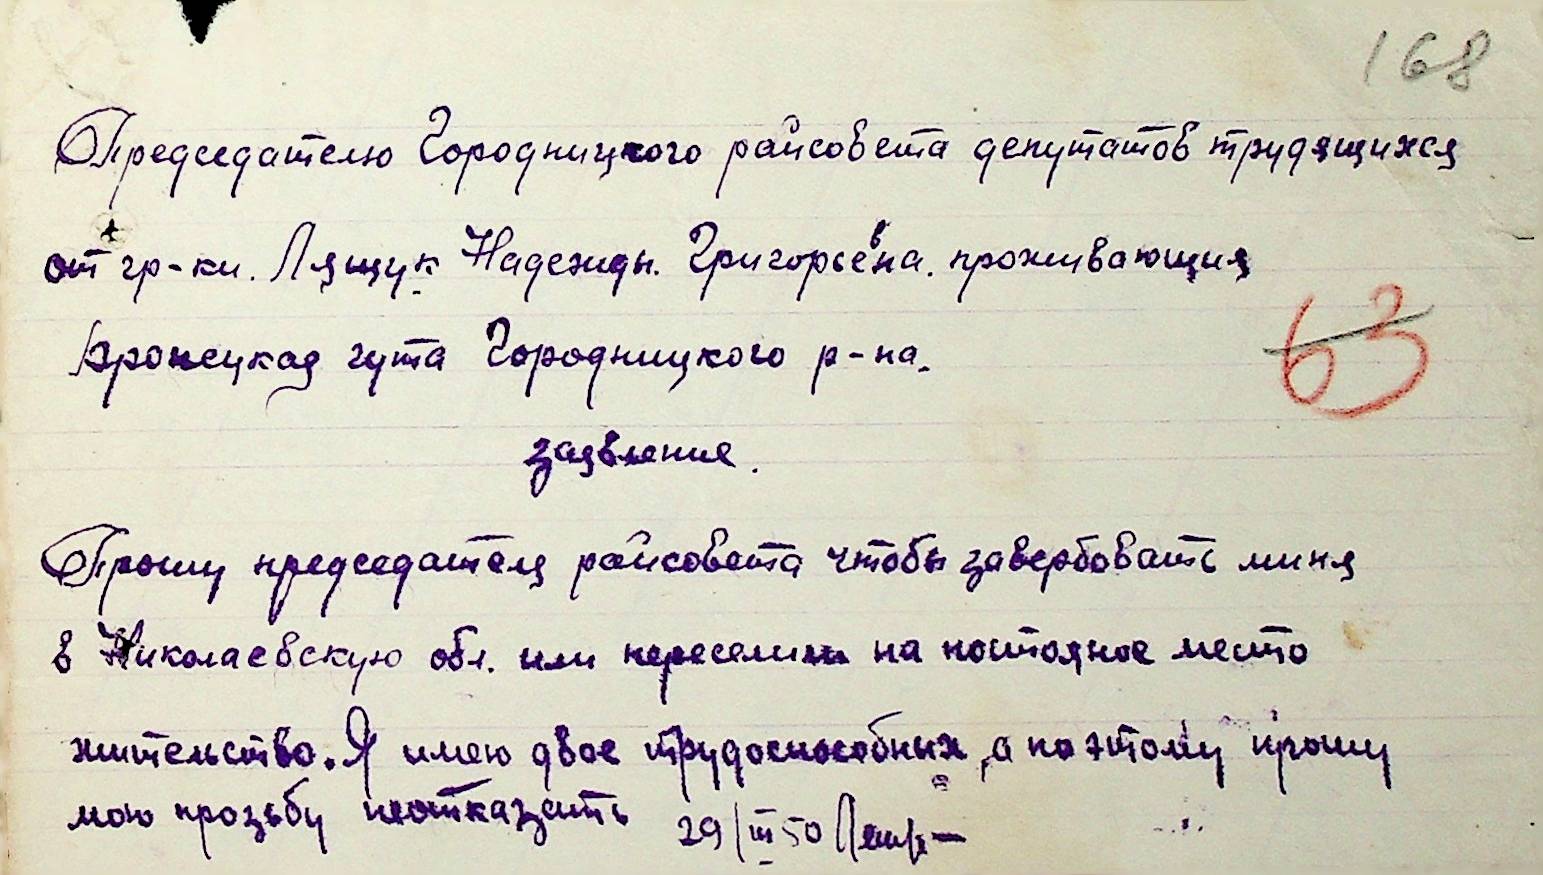 168
Председателю Городницкого райсовета депутатов трудящихся
от гр-ки. Лящук Надежды. Григорьевна. проживающия
Дронецкая гута Городницкого р-на.
63
заявление.
Прошу председателя райсовета чтобы завербовать миня
в Николаевскую обл. или переселить на постояное место
жительство. Я имею двое трудоспособных, а поэтому прошу
мою прозьбу неотказать 29/III 50